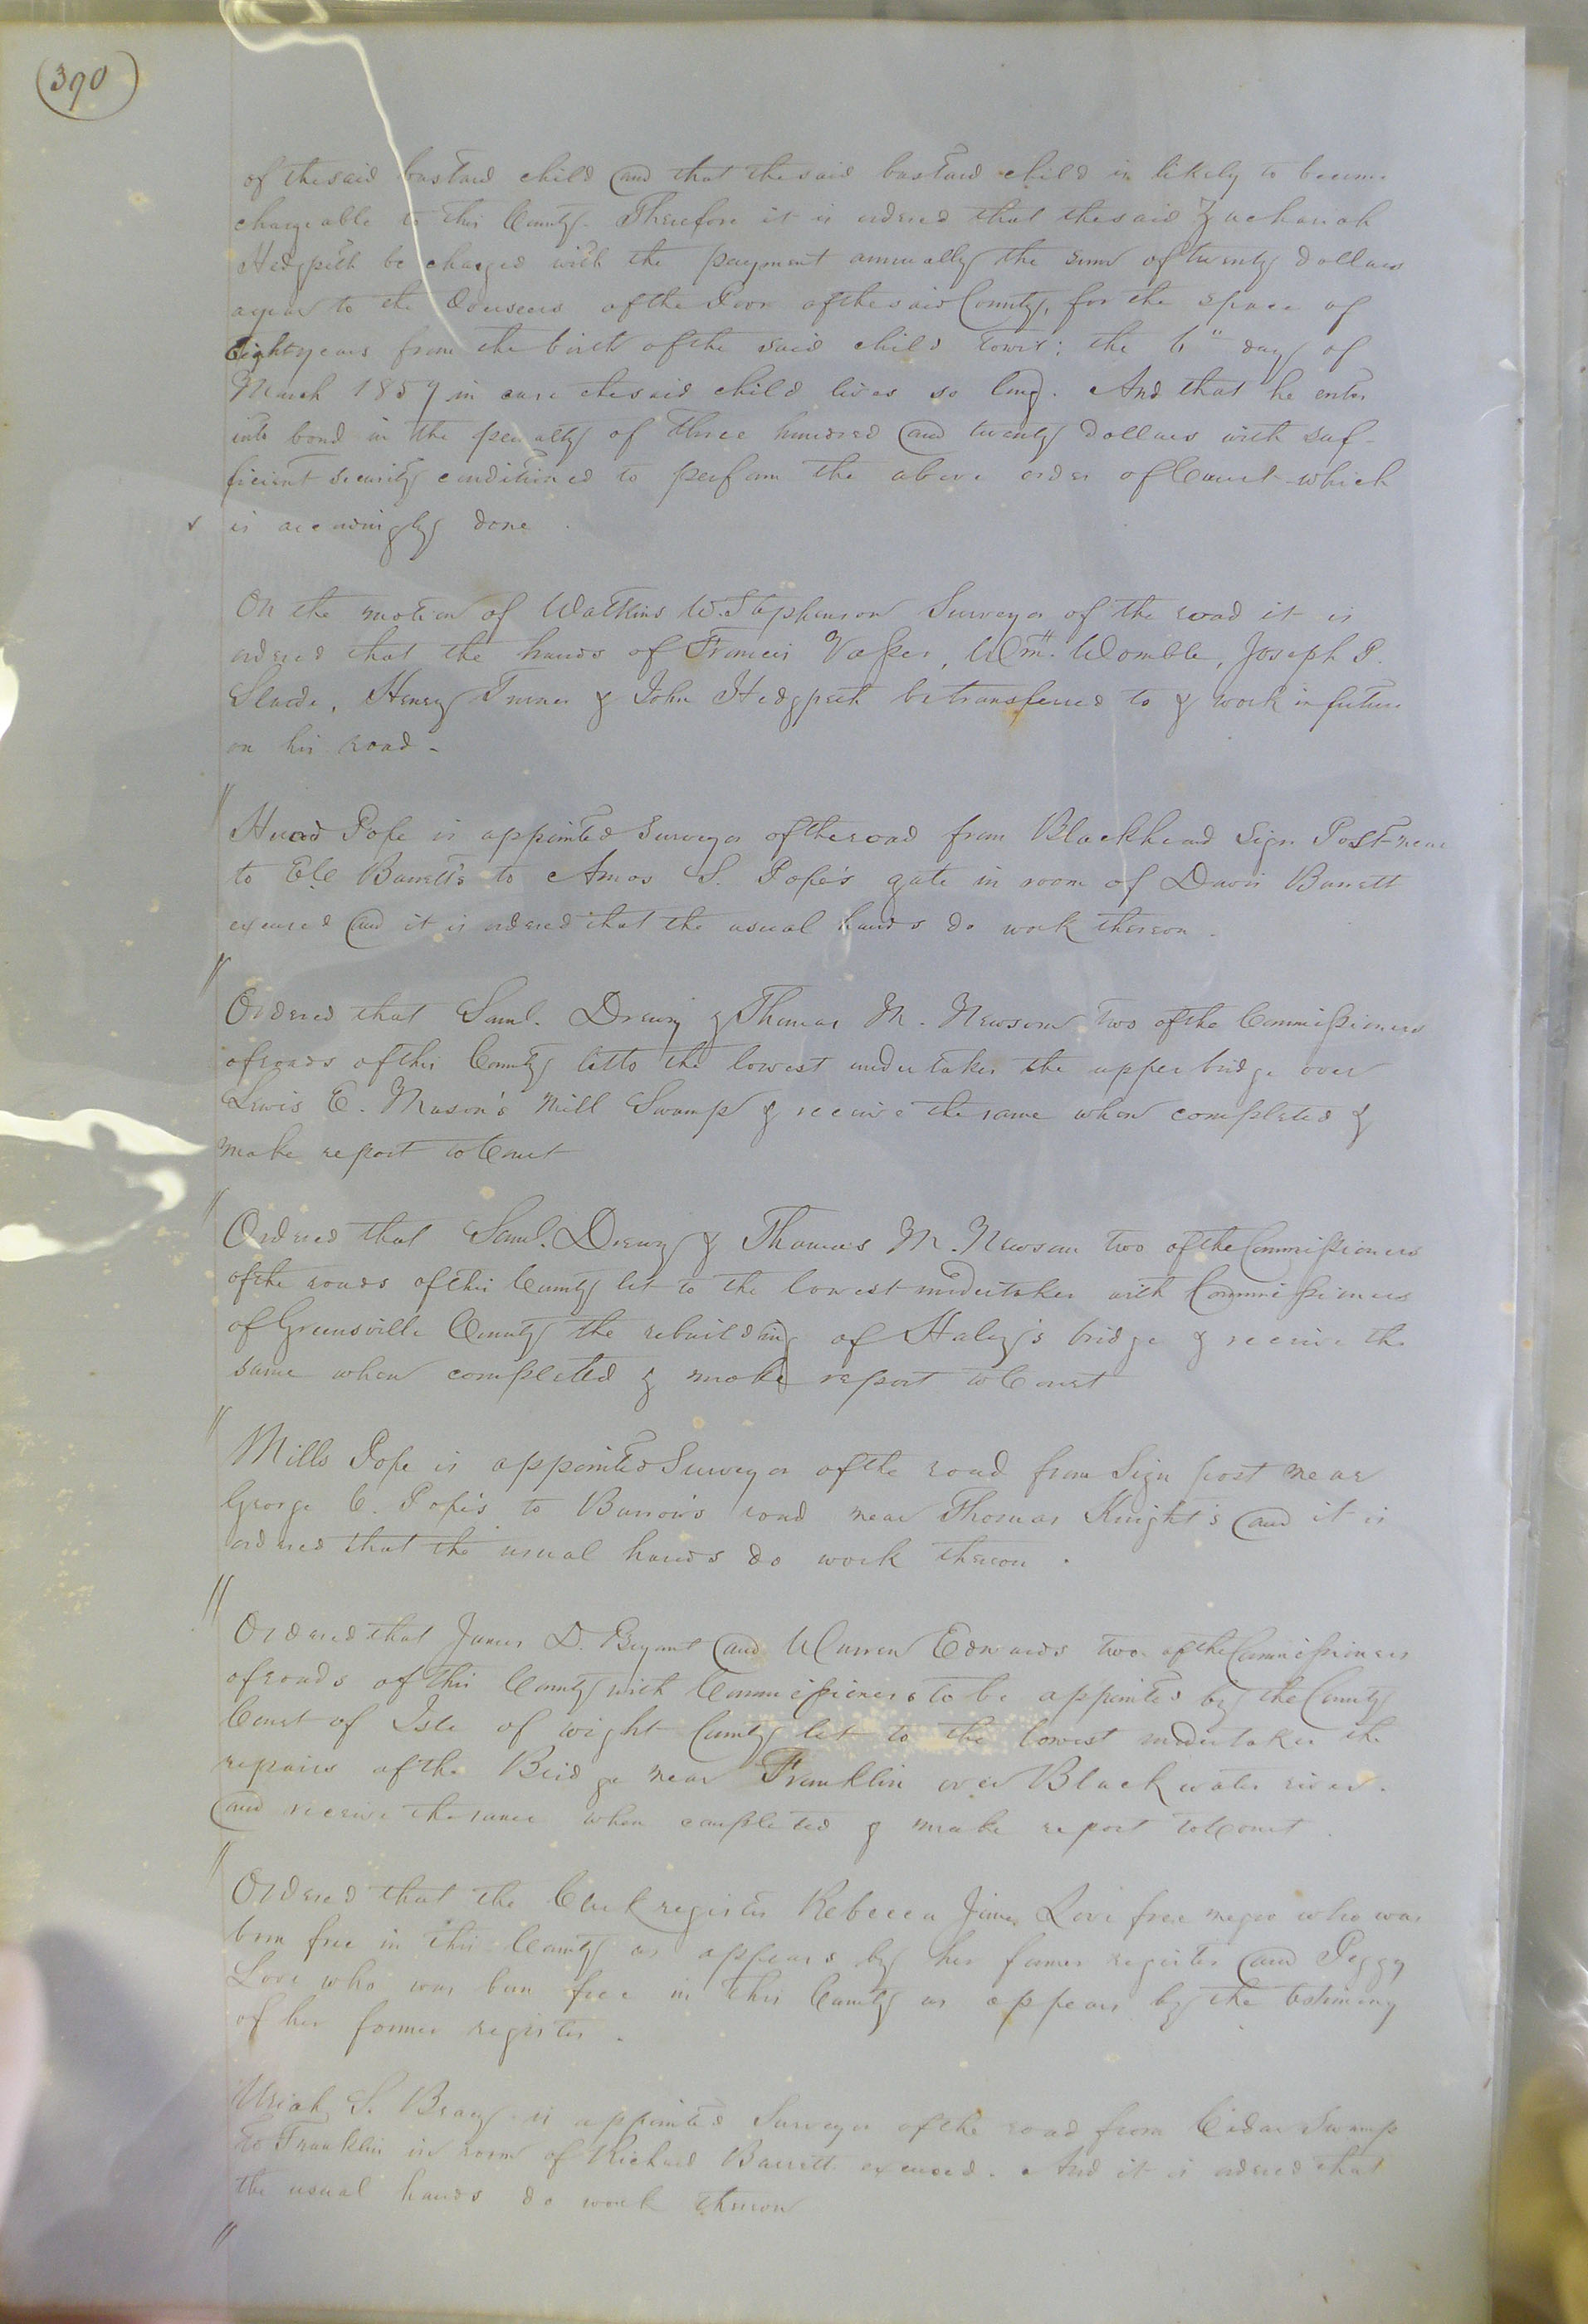 (390)
of the said bastard child and that the said bastard child is likely to become
chargeable to this County. Therefore it is ordered that the said Zachariah
Hedgpeth be charged with the payment annually the sum of twenty dollars
a year to the Overseers of the Poor of the said County, for the space of
Eight years from the birth of the said child towit: the 6" day of
March 1857 in case the said child lives so long. And that he enter
into bond in the penalty of three hundred and twenty dollars with suf-
ficient security conditioned to perform the above order of Court which
is accordingly done.
On the motion of Watkins W. Stephenson Surveyor of the road it is
ordered that the hands of Francis Vasser, Wm. Womble, Joseph P.
Slade, Henry Turner & John Hedgpeth be transferred to & work in future
on his road -
Pope is appointed Surveyor of the road from Blackhead Sign Post near
to Barrett's to Amos S. Pope's gate in room of Davis Barrett
excused and it is ordered that the usual hands do work thereon.
Ordered that Saml. Drewry & Thomas M. Newsom two of the Commissioners
of roads of this County let to the lowest undertaker the upper bridge over
Lewis E. Mason's Mill Swamp & receive the same when completed &
make report to Court
Ordered that Saml. Drewry & Thomas M. Newsom two of the Commissioners
of the roads of this County let to the lowest undertaker with Commissioners
of Greensville County the rebuilding of Haley's bridge & receive the
same when completed & make report to Court
Mills Pope is appointed Surveyor of the road from Sign post near
George C. Pope's to Barrow's road near Thomas Knight's and it is
ordered that the usual hands do work thereon.
Ordered that James D. Bryant and Warren Edwards two of the Commissioners
of roads of this County with Commissioners to be appointed by the County
Court of Isle of wight County let to the lowest undertaker the
repairs of the Bridge near Franklin over Black water river.
and receive the same when completed & make report to Court.
Ordered that the Clerk register Rebecca Love free negro who was
born free in this County as appears by her former register and Peggy
Love who was born free in this County as appears by the testimony
of her former register.
Uriah S. Bray is appointed Surveyor of the road from Cedar Swamp
to Franklin in room of Richard Barrett excused. And it is ordered that
the usual hands do work thereon